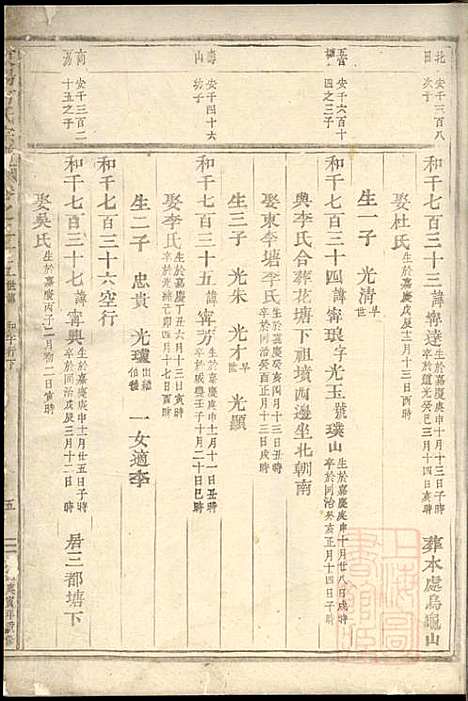 北 安千三百八
田 次子
和千七百三十三 諱甯達 生於嘉慶庚申十月十三日子時 卒於道光癸巳三月十四日亥時 葬本處烏龜山
娶杜氏 生於嘉慶戊辰十二月十三日酉時
生一子 光清 早世
安千六百十
四之三子
和千七百三十四 諱甯琅 字光玉 號璞山 生於嘉慶庚申十月廿八日戌時 卒於同治癸亥正月十四日子時
與李氏合葬花塘下祖墳西邊坐北朝南
娶東李塘李氏 生於嘉慶癸亥四月十三日丑時 卒於同治癸酉正月十三日亥時
生三子 光朱 光才 早世 光顯
安千四十六
山 幼子
和千七百三十五 諱甯芳 生於嘉慶庚申十一月十一日丑時 卒於咸豐壬子十月二十日巳時
娶李氏 生於嘉慶丁丑六月十三日寅時 卒於光緒己卯四月十七日戌時
生二子 忠貴 光瓊 出繼伯權 一女適李
和千七百三十六空行
南 安千三百二
十五之子
和千七百三十七 諱甯興 生於嘉慶庚申十二月廿五日子時 卒於同治戊辰三月十二日 居三都塘下
娶吳氏 生於嘉慶丙子二月初二日寅時
五
上海圖書館藏